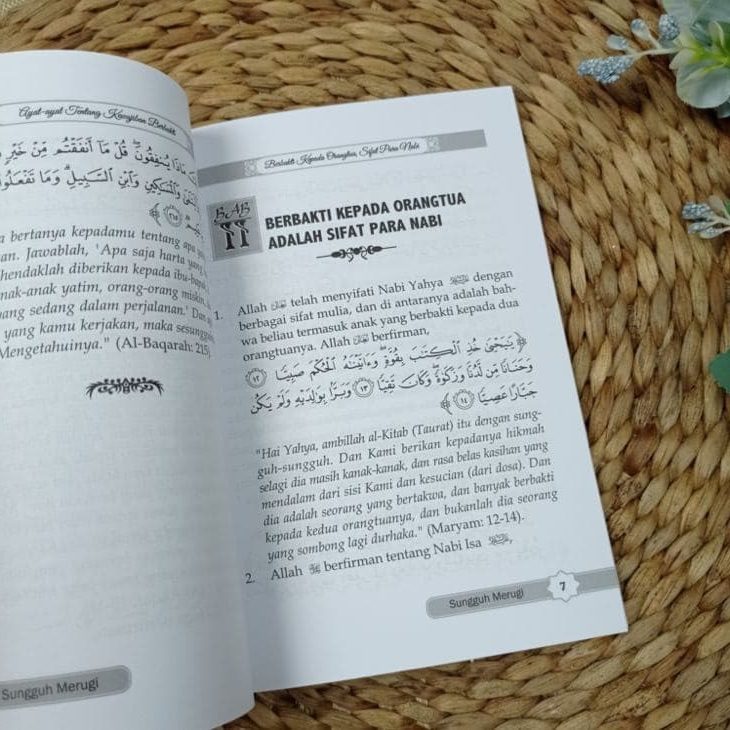 Ayat-ayat Tentang Kewajiban Berbakti
مَاذَا يُنفِقُونَ قُلْ مَا أَنفَقْتُم مِّنْ خَيْرٍ
وَالْمَسَٰكِينِ وَابْنِ السَّبِيلِ وَمَا تَفْعَلُوا
﴿٢١٥﴾
bertanya kepadamu tentang apa
Jawablah, 'Apa saja harta yang
hendaklah diberikan kepada ibu-bapak,
anak-anak yatim, orang-orang miskin,
yang sedang dalam perjalanan.' Dan
yang kamu kerjakan, maka sesungguh
Mengetahuinya." (Al-Baqarah: 215)
Sungguh Merugi
Berbakti Kepada Orangtua, Sifat Para Nabi
BAB
II
BERBAKTI KEPADA ORANGTUA
ADALAH SIFAT PARA NABI
1. Allah telah menyifati Nabi Yahya dengan
berbagai sifat mulia, dan di antaranya adalah bah-
wa beliau termasuk anak yang berbakti kepada dua
orangtuanya. Allah berfirman,
﴿ يَٰيَحْيَىٰ خُذِ الْكِتَٰبَ بِقُوَّةٍ وَءَاتَيْنَٰهُ الْحُكْمَ صَبِيًّا ١٢
وَحَنَانًا مِّن لَّدُنَّا وَزَكَوٰةً وَكَانَ تَقِيًّا ١٣ وَبَرًّۢا بِوَٰلِدَيْهِ وَلَمْ يَكُن
جَبَّارًا عَصِيًّا ١٤ ﴾
"Hai Yahya, ambillah al-Kitab (Taurat) itu dengan sung-
guh-sungguh. Dan Kami berikan kepadanya hikmah
selagi dia masih kanak-kanak, dan rasa belas kasihan yang
mendalam dari sisi Kami dan kesucian (dari dosa). Dan
dia adalah seorang yang bertakwa, dan banyak berbakti
kepada kedua orangtuanya, dan bukanlah dia seorang
yang sombong lagi durhaka." (Maryam: 12-14).
2. Allah berfirman tentang Nabi Isa ,
Sungguh Merugi
7